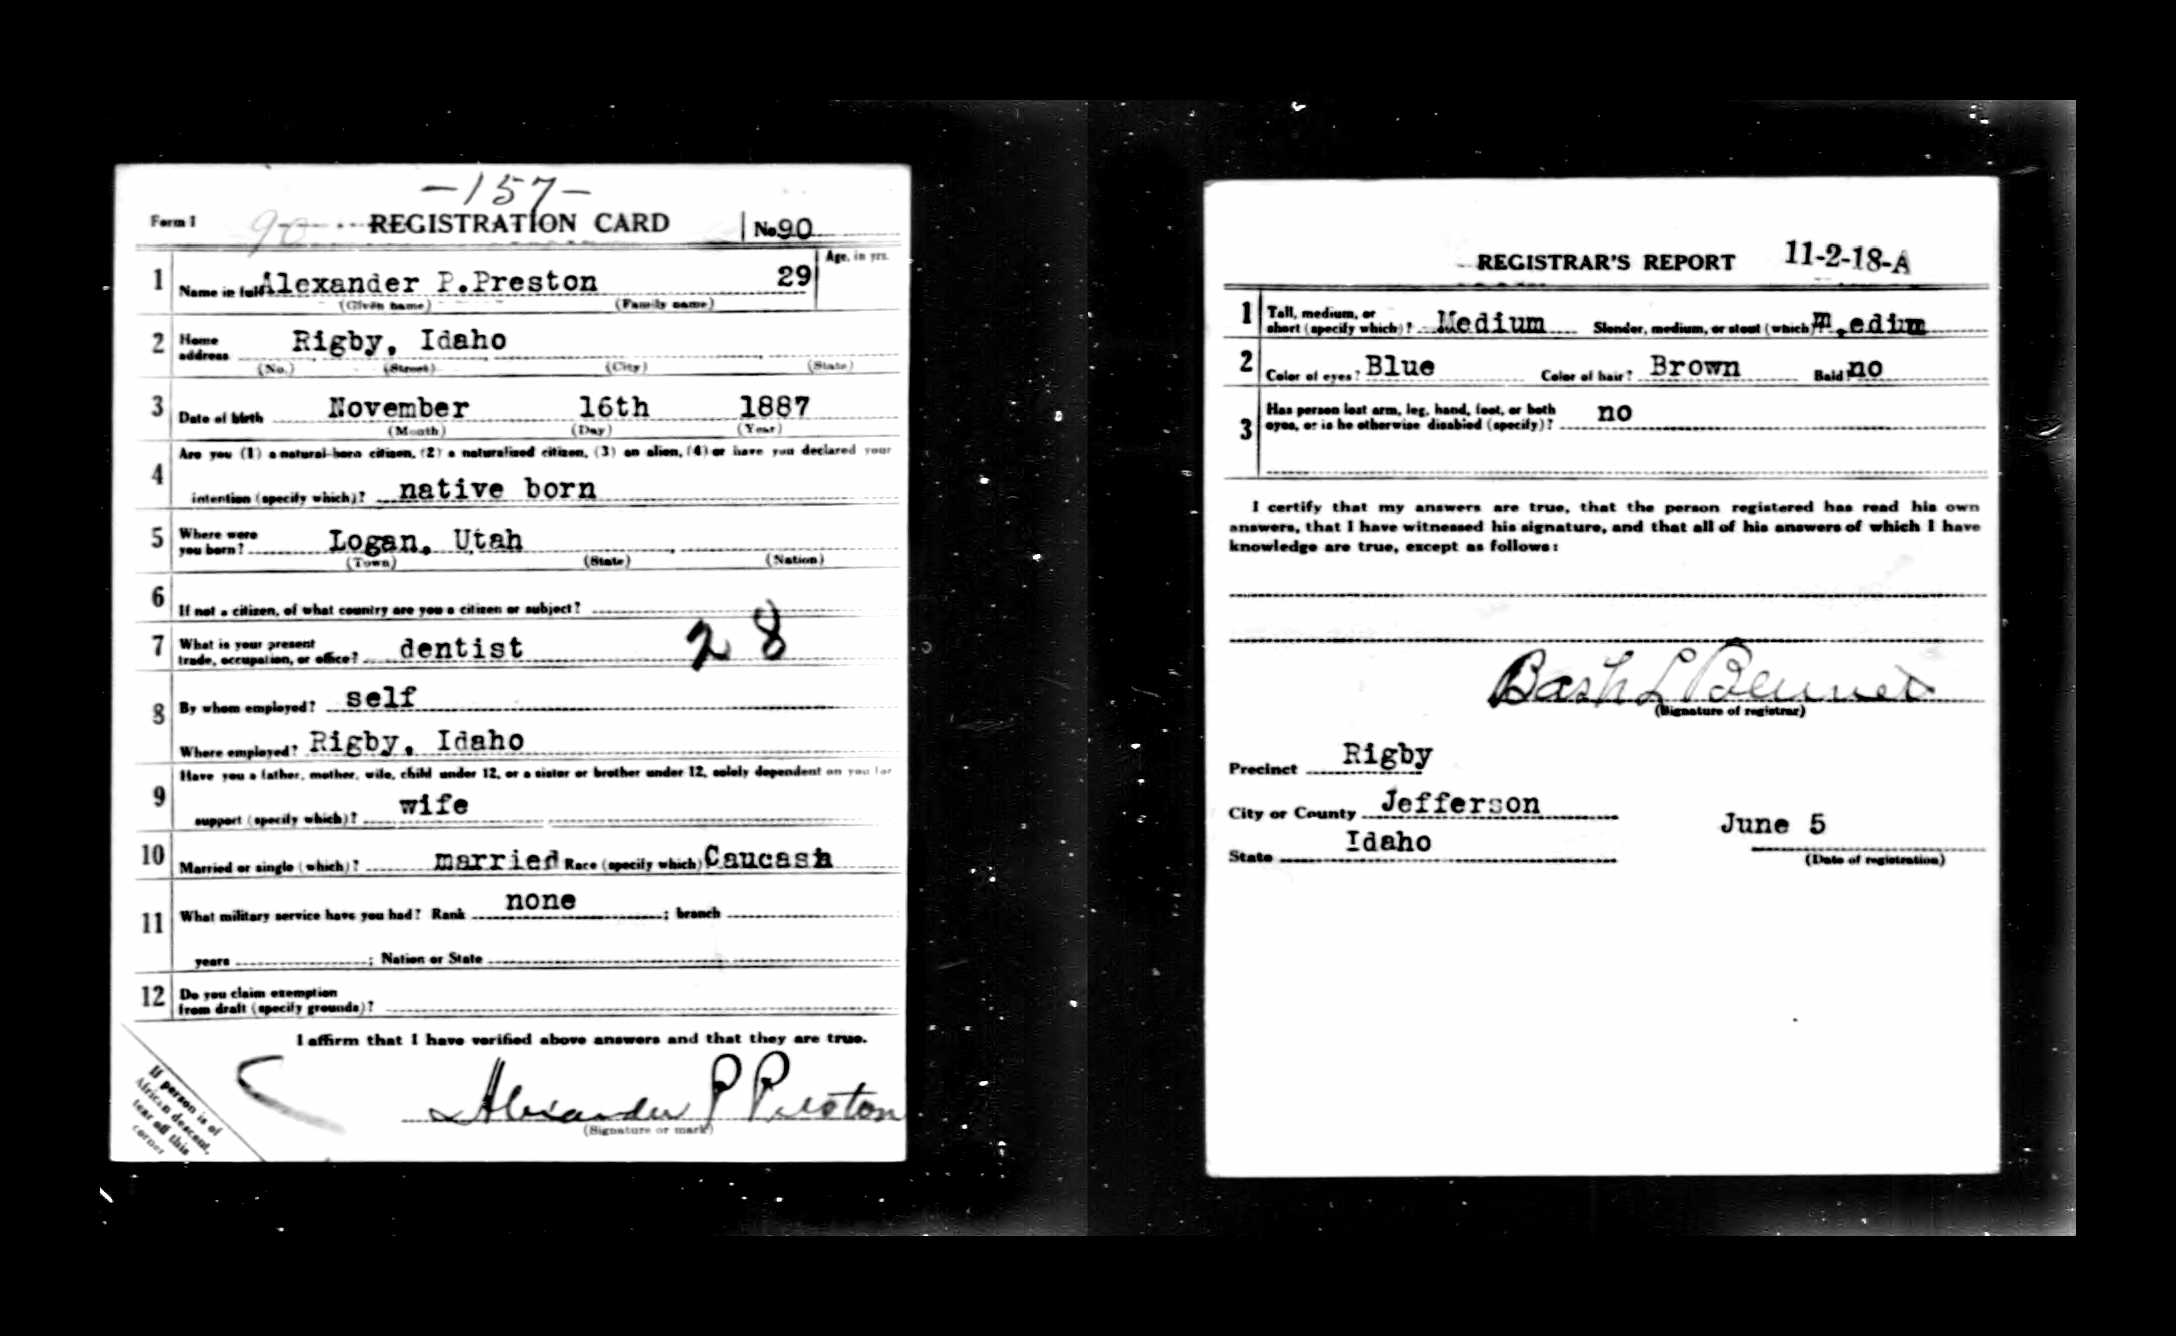 -157-
Form 1 90 REGISTRATION CARD No 90
Age, in yrs.
1 Name in full Alexander P.Preston 29
(Given name) (Family name)
2 Home address Rigby, Idaho
(No.) (Street) (City) (State)
3 Date of birth November 16th 1887
(Month) (Day) (Year)
4 Are you (1) a natural-born citizen, (2) a naturalized citizen, (3) an alien, (4) or have you declared your
intention (specify which)? native born
5 Where were you born? Logan, Utah
(Town) (State) (Nation)
6 If not a citizen, of what country are you a citizen or subject?
7 What is your present trade, occupation, or office? dentist 28
8 By whom employed? self
Where employed? Rigby, Idaho
9 Have you a father, mother, wife, child under 12, or a sister or brother under 12, solely dependent on you for
support (specify which)? wife
10 Married or single (which)? married Race (specify which) Caucasn
11 What military service have you had? Rank none ; branch
years ; Nation or State
12 Do you claim exemption
from draft (specify grounds)?
I affirm that I have verified above answers and that they are true.
Alexander P Preston
(Signature or mark)
If person is of
African descent,
tear off this
corner
REGISTRAR'S REPORT 11-2-18-A
1 Tall, medium, or
short (specify which)? Medium Slender, medium, or stout (which) m.edium
2 Color of eyes? Blue Color of hair? Brown Bald? no
3 Has person lost arm, leg, hand, foot, or both
eyes, or is he otherwise disabled (specify)? no
I certify that my answers are true, that the person registered has read his own
answers, that I have witnessed his signature, and that all of his answers of which I have
knowledge are true, except as follows:
Bash L Bennet
(Signature of registrar)
Precinct Rigby
City or County Jefferson
State Idaho
June 5
(Date of registration)